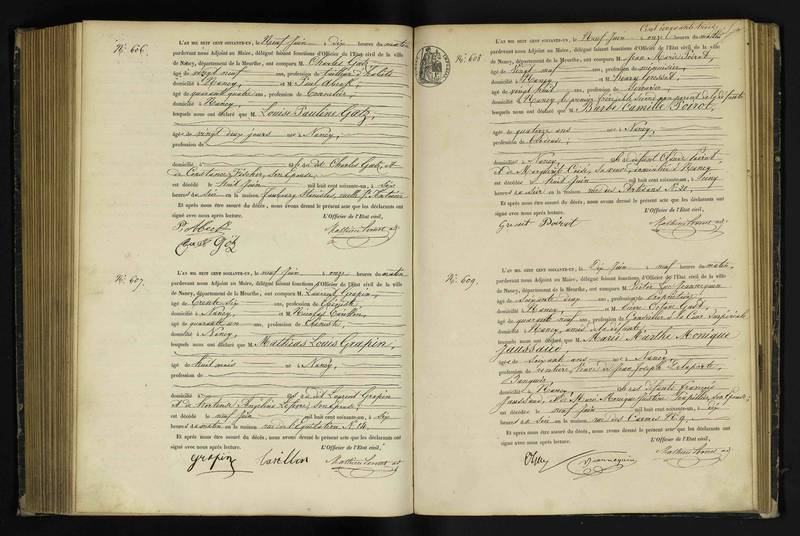 N°. 606.
L'AN MIL HUIT CENT SOIXANTE-UN, le Neuf Juin à dix heures du matin
pardevant nous Adjoint au Maire, délégué faisant fonctions d'Officier de l'Etat civil de la ville
de Nancy, département de la Meurthe, ont comparu M. Charles Gatz
âgé de vingt neuf ans, profession de tailleur d'habits
domicilié à Nancy, et M. Paul
âgé de quarante quatre ans, profession de Cordonnier,
domicilié à Nancy,
lesquels nous ont déclaré que M. Louise Pauline Gatz,
âgée de vingt deux jours née à Nancy,
profession de
domicilié à fille du dit Charles Gatz, et
de Constance Fischer, son épouse,
est décédée le huit Juin mil huit cent soixante-un, à six
heures du soir en la maison faubourg Stanislas, ruelle
Et après nous être assuré du décès, nous avons dressé le présent acte que les déclarants ont
signé avec nous après lecture. L'Officier de l'Etat civil,
N°. 607.
L'AN MIL HUIT CENT SOIXANTE-UN, le neuf Juin à onze heures du matin
pardevant nous Adjoint au Maire, délégué faisant fonctions d'Officier de l'Etat civil de la ville
de Nancy, département de la Meurthe, ont comparu M. Laurent Grapin,
âgé de trente six ans, profession de Ebéniste,
domicilié à Nancy, et M. Nicolas Cavillon,
âgé de quarante un ans, profession de Ebéniste,
domicilié à Nancy,
lesquels nous ont déclaré que M. Mathias Louis Grapin,
âgé de huit mois né à Nancy,
profession de
domicilié à fils du dit Laurent Grapin
et de Hortense Angeline Lefèvre, son épouse,
est décédé le neuf Juin mil huit cent soixante-un, à six
heures du matin en la maison rue de l'Equitation N. 14.
Et après nous être assuré du décès, nous avons dressé le présent acte que les déclarants ont
signé avec nous après lecture. L'Officier de l'Etat civil,
Grapin Cavillon
N°. 608
L'AN MIL HUIT CENT SOIXANTE-UN, le Neuf Juin à onze heures du matin
pardevant nous Adjoint au Maire, délégué faisant fonctions d'Officier de l'Etat civil de la ville
de Nancy, département de la Meurthe, ont comparu M. Jean Marie Poirot,
âgé de vingt neuf ans, profession de menuisier,
domicilié à Nancy et M. Henry Gresset,
âgé de vingt huit ans, profession de Menuisier,
domicilié à Nancy, le premier frère, le second non parent de la défunte
lesquels nous ont déclaré que M. Barbe Camille Poirot,
âgée de quatorze ans née à Nancy,
profession de Brodeuse,
domiciliée à Nancy, fille de défunt Poirot,
et de Marguerite sa veuve, domiciliée à Nancy
est décédée le huit Juin mil huit cent soixante-un, à onze
heures du soir en la maison rue des Artisans N. 20.
Et après nous être assuré du décès, nous avons dressé le présent acte que les déclarants ont
signé avec nous après lecture. L'Officier de l'Etat civil,
Gresset Poirot
N°. 609.
L'AN MIL HUIT CENT SOIXANTE-UN, le Dix Juin à neuf heures du matin,
pardevant nous Adjoint au Maire, délégué faisant fonctions d'Officier de l'Etat civil de la ville
de Nancy, département de la Meurthe, ont comparu M. Victor Luc Jeannequin
âgé de soixante deux ans, profession de propriétaire
domicilié à Nancy, et M.
âgé de quarante neuf ans, profession de Conseiller à la Cour Impériale
domicilié à Nancy, amis de la défunte,
lesquels nous ont déclaré que M. Marie Marthe Monique
Jaussaud
âgée de soixante ans née à Nancy,
profession de rentière, veuve de Jean Joseph Delaporte,
Banquier,
domiciliée à Nancy fille de défunts François
Jaussaud, et de Marie Monique son épouse,
est décédée le neuf Juin mil huit cent soixante-un, à dix
heures du soir en la maison rue des Carmes N. 9.
Et après nous être assuré du décès, nous avons dressé le présent acte que les déclarants ont
signé avec nous après lecture. L'Officier de l'Etat civil,